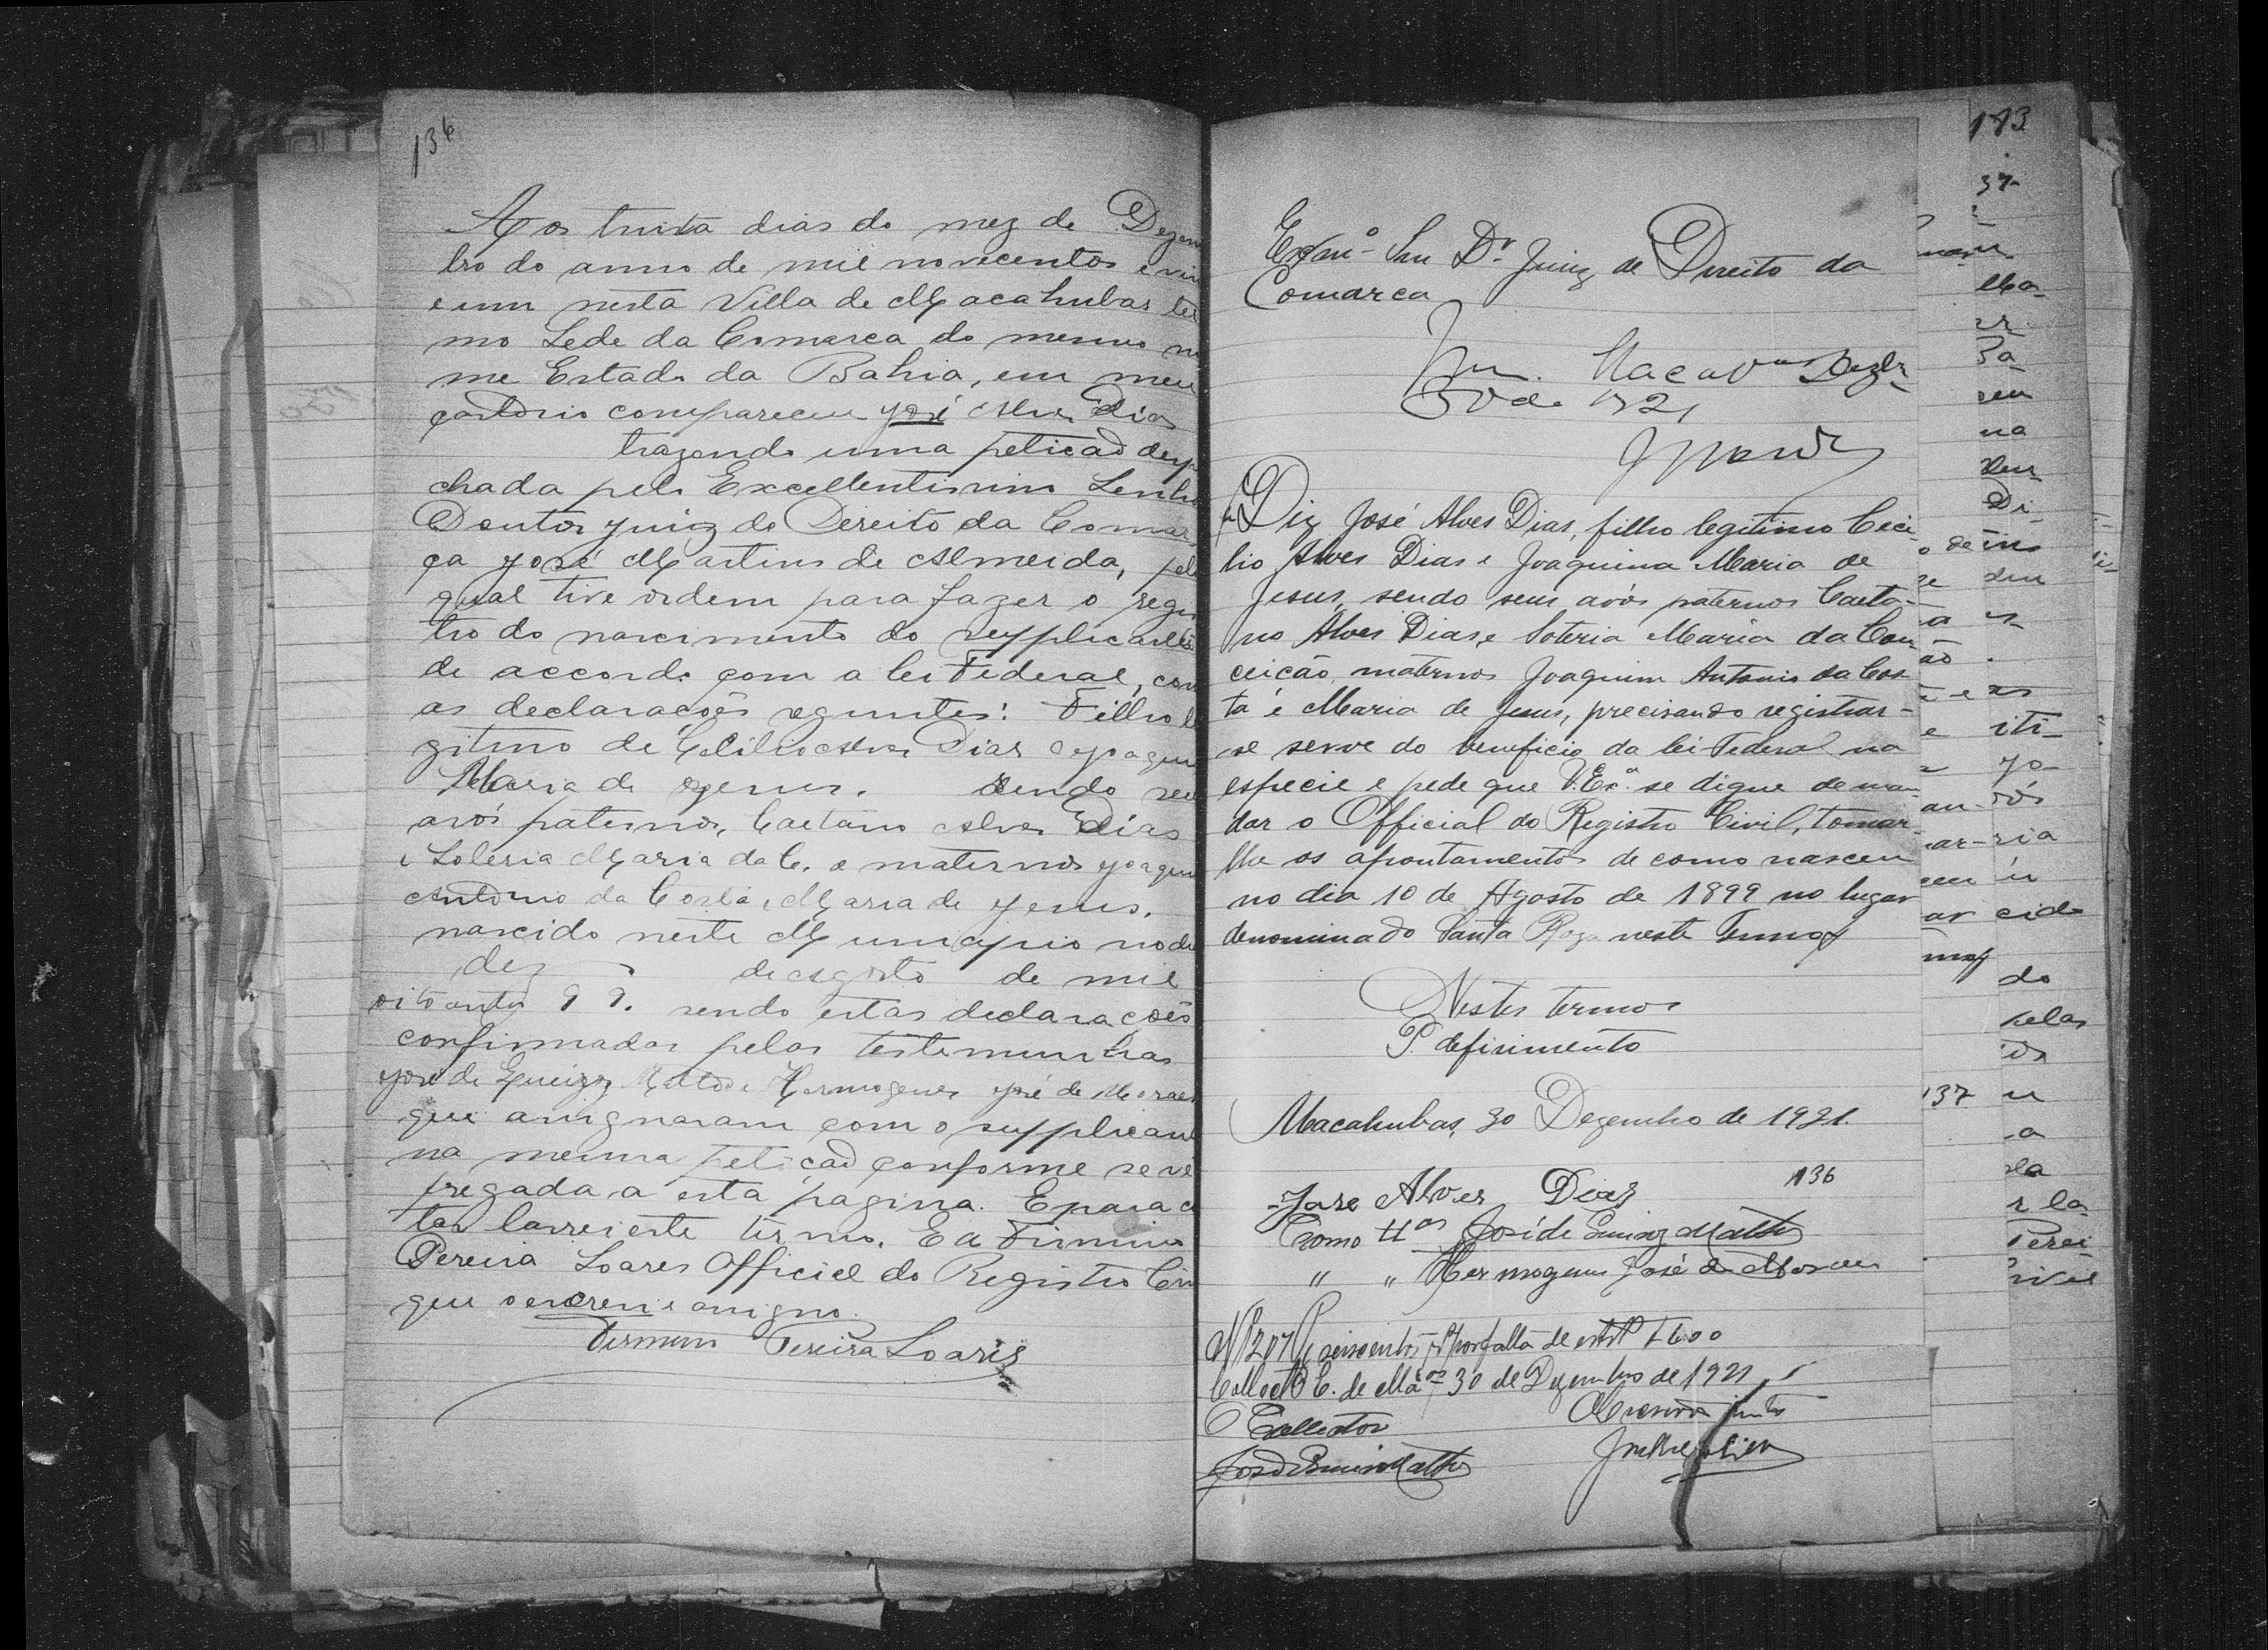 136
Aos trinta dias do mez de Dezem
bro do anno de mil novecentos e vin
e um nesta Villa de Macahubas ter
mo Sede da Comarca do mesmo no
me Estado da Bahia, em meu
cartorio compareceu José Alves Dias
trazendo uma petição despa
chada pelo Excellentissimo Senho
Doutor Juiz de Direito da Comar
ca José Martins de Almeida, pela
qual tive ordem para fazer o regis
tro do nascimento do supplicante
de accordo com a lei Federal, com
as declarações seguintes: Filho le
gitimo de Cecilio Alves Dias e Joaquin
Maria de Jesus. sendo seu
avós paternos, Caetano Alves Dias
e Soteria Maria da C. e maternos Joaquim
Antonio da Costa e Maria de Jesus.
nascido neste Municipio no di
dez de Agosto de mil
oitocentos 99. sendo estas declarações
confirmadas pelas testemunhas
José de Mattos e Hermogenes José de Moraes
que assignaram com o supplicante
na mesma petição conforme se vê
pregada a esta pagina. E para c
tar lavrei este termo. Eu Firmino
Pereira Soares Official do Registro Civ
que o escrevi e assigno.
Firmino Pereira Soares
113
Exmº Snr Dr. Juiz de Direito da
Comarca
Macavas Dezbr
30 de 1921
Diz José Alves Dias, filho legitimo Ceci
lio Alves Dias e Joaquina Maria de
Jesus, sendo seus avós paternos Caeta-
no Alves Dias, e Soteria Maria da Con-
ceição, maternos Joaquim Antonio da Cos
ta e Maria de Jesus, precisando registrar-
se serve do beneficio da lei Federal na
especie e pede que V. Exª. se digne de man-
dar o Official do Registro Civil, tomar-
lhe os apontamentos de como nasceu
no dia 10 de Agosto de 1899 no lugar
denominado Santa Roza neste Termo
Nestes termos
P. deferimento
Macahubas, 30 Dezembro de 1921.
136
José Alves Dias
Como ttas José de Mattos
" " Hermogenes José de Moraes
por falta de estª 600
Collectª E. de Macªs 30 de Dezembro de 1921
O Collector
137